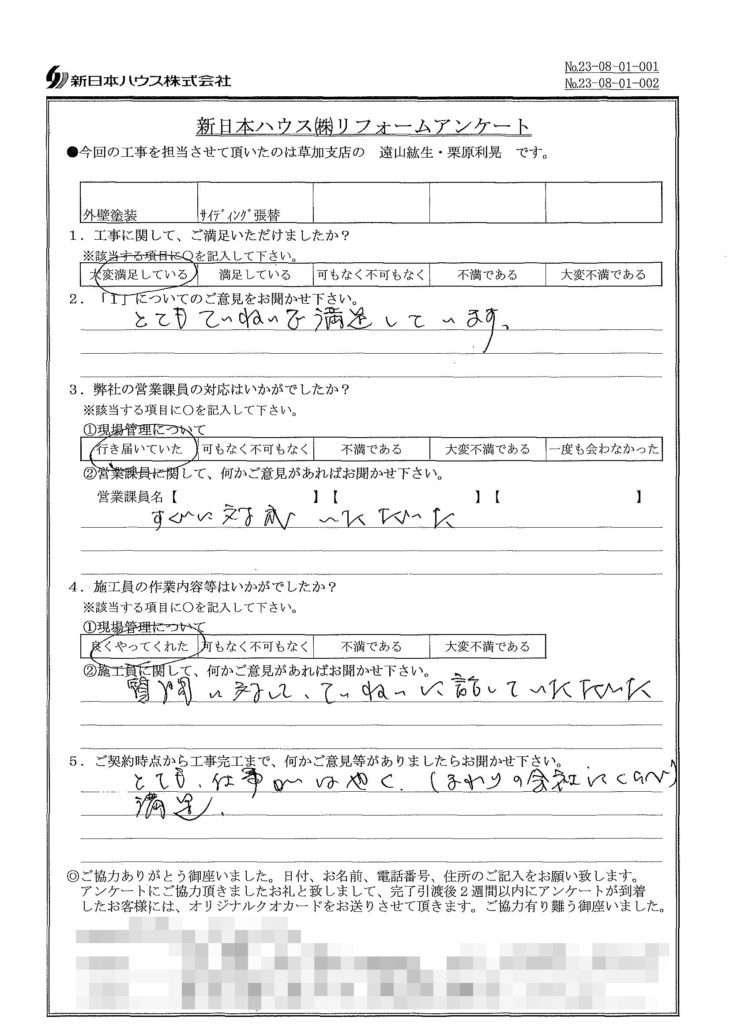 新日本ハウス株式会社
№23-08-01-001
№23-08-01-002
新日本ハウス㈱リフォームアンケート
●今回の工事を担当させて頂いたのは草加支店の 遠山紘生・栗原利晃 です。
外壁塗装 ｻｲﾃﾞｨﾝｸﾞ張替
１．工事に関して、ご満足いただけましたか？
※該当する項目に○を記入して下さい。
大変満足している 満足している 可もなく不可もなく 不満である 大変不満である
２．「１」についてのご意見をお聞かせ下さい。
とてもていねいで満足しています。
３．弊社の営業課員の対応はいかがでしたか？
※該当する項目に○を記入して下さい。
①現場管理について
行き届いていた 可もなく不可もなく 不満である 大変不満である 一度も会わなかった
②営業課員に関して、何かご意見があればお聞かせ下さい。
営業課員名【 】【 】【 】
すぐに対応いただいた
４．施工員の作業内容等はいかがでしたか？
※該当する項目に○を記入して下さい。
①現場管理について
良くやってくれた 可もなく不可もなく 不満である 大変不満である
②施工員に関して、何かご意見があればお聞かせ下さい。
質問に対して、ていねいに話していただいた
５．ご契約時点から工事完工まで、何かご意見等がありましたらお聞かせ下さい。
とても、仕事がはやく、(まわりの会社にくらべ)
満足。
◎ご協力ありがとう御座いました。日付、お名前、電話番号、住所のご記入をお願い致します。
アンケートにご協力頂きましたお礼と致しまして、完了引渡後２週間以内にアンケートが到着
したお客様には、オリジナルクオカードをお送りさせて頂きます。ご協力有り難う御座いました。